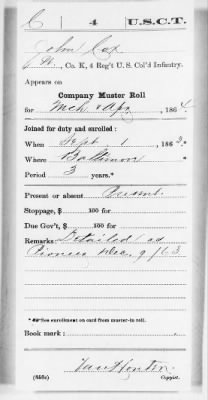 C | 4 | U.S.C.T.
John Cox
, Co. K, 4 Reg't U. S. Col'd Infantry.
Appears on
Company Muster Roll
for Mch & Apr, 1864.
Joined for duty and enrolled:
When Sept 1, 1863.*
Where Baltimore *
Period 3 years.*
Present or absent Present
Stoppage, $ 100 for
Due Gov't, $ 100 for
Remarks: Detailed as
Pioneer Dec. 9/63
* See enrollment on card from muster-in roll.
Book mark:
(858c) Copyist.